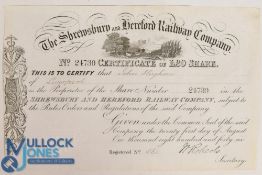 The Shrewsbury and Hereford Railway Company
No 24730 CERTIFICATE OF £20 SHARE.
THIS IS TO CERTIFY that
is the Proprietor of the Share Number 24730 in the
SHREWSBURY AND HEREFORD RAILWAY COMPANY, subject to
the Rules Orders and Regulations of the said Company.
Given under the Common Seal of the said
Company the twenty first day of August
One thousand eight hundred and forty
Registered No
Secretary.
MULLOCK
JONES